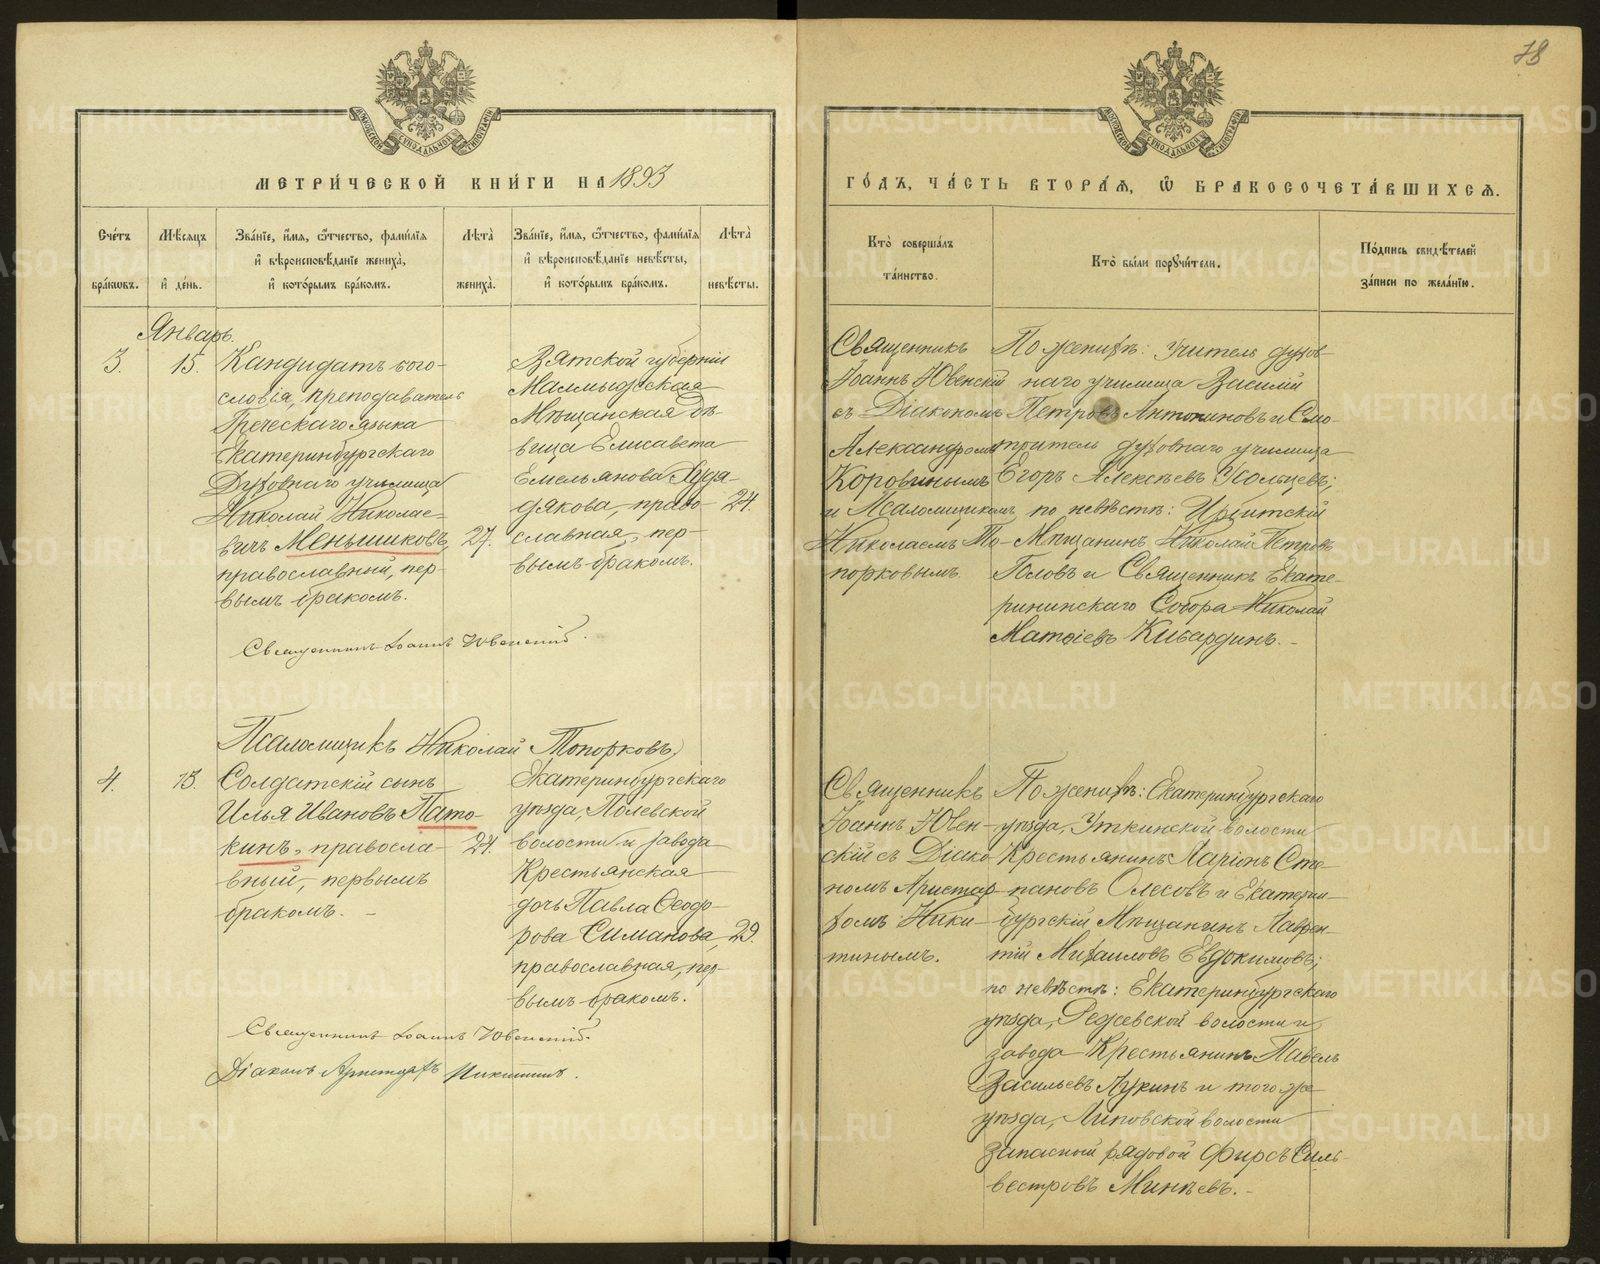 78
МЕТРИ́ЧЕСКОЙ КНИ́ГИ НА 1893
ГО́ДЪ, ЧА́СТЬ ВТОРА́Ѧ, Ѽ БРАКОСОЧЕТА́ВШИХСѦ.
Сче́тъ бра́кѡвъ.
Мѣ́сѧцъ и҆ де́нь.
Зва́нїе, и҆́мѧ, ѻ҆́тчество, фами́лїѧ
и҆ вѣроисповѣ́данїе жениха̀,
и҆ кото́рымъ бра́комъ.
Лѣ́та жениха̀.
Зва́нїе, и҆́мѧ, ѻ҆́тчество, фами́лїѧ
и҆ вѣроисповѣ́данїе невѣ́сты,
и҆ кото́рымъ бра́комъ.
Лѣ́та невѣ́сты.
Кто̀ соверша́лъ
та́инство.
Кто̀ бы́ли порꙋчи́тели.
По́дпись свидѣ́телей
за́писи по жела́нїю.
Январь.
3.
15.
Кандидатъ бого-
словія, преподаватель
Греческаго языка
Екатеринбургскаго
Духовнаго училища
Николай Николае-
вичъ Меньшиковъ,
православный, пер-
вымъ бракомъ.
27.
Вятской губерніи
Малмыжская
Мѣщанская дѣ-
вица Елисавета
Емельянова Худя-
дякова, право-
славная, пер-
вымъ бракомъ.
24.
Священникъ
Іоаннъ Ювенскій
съ Діакономъ
Александромъ
Коровинымъ
и Псаломщикомъ
Николаемъ То-
порковымъ.
По женихѣ: Учитель духов-
наго училища Василій
Петровъ Антониновъ и Смо-
тритель духовнаго училища
Егоръ Алексѣевъ Усольцевъ;
по невѣстѣ: Ирбитскій
Мѣщанинъ Николай Петровъ
Поповъ и Священникъ Екате-
рининскаго Собора Николай
Матѳіевъ Кибардинъ.-
Священникъ Іоаннъ Ювенскій.
Псаломщикъ Николай Топорковъ
4.
15.
Солдатскій сынъ
Илья Ивановъ Пато-
кинъ, правосла-
вный, первымъ
бракомъ. -
24.
Екатеринбургскаго
уѣзда, Полевской
волости и завода
Крестьянская
дочь Павла Ѳеодо-
рова Симанова,
православная, пер-
вымъ бракомъ.
29.
Священникъ
Іоаннъ Ювен-
скій съ Діако-
номъ Аристар-
хомъ Ники-
тинымъ.
По женихѣ: Екатеринбургскаго
уѣзда, Уткинской волости
Крестьянинъ Ларіонъ Сте-
пановъ Олесовъ и Екатерин-
бургскій Мѣщанинъ Лаврен-
тій Михаиловъ Евдокимовъ;
по невѣстѣ: Екатеринбургскаго
уѣзда, Режевской волости и
завода Крестьянинъ Павелъ
Васильевъ Лукинъ и того же
уѣзда, Липовской волости
запасной рядовой Фирсъ Силь-
вестровъ Минѣевъ.-
Священникъ Іоаннъ Ювенскій.
Діаконъ Аристархъ Никитинъ.
METRIKI.GASO-URAL.RU